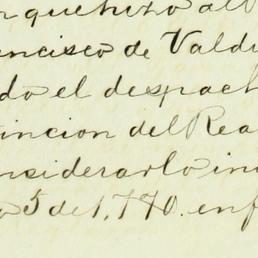 que hizo al
ncisco de Vald
do el despach
tincion del Rea
nsiderarlo in
5 de 1,770. en